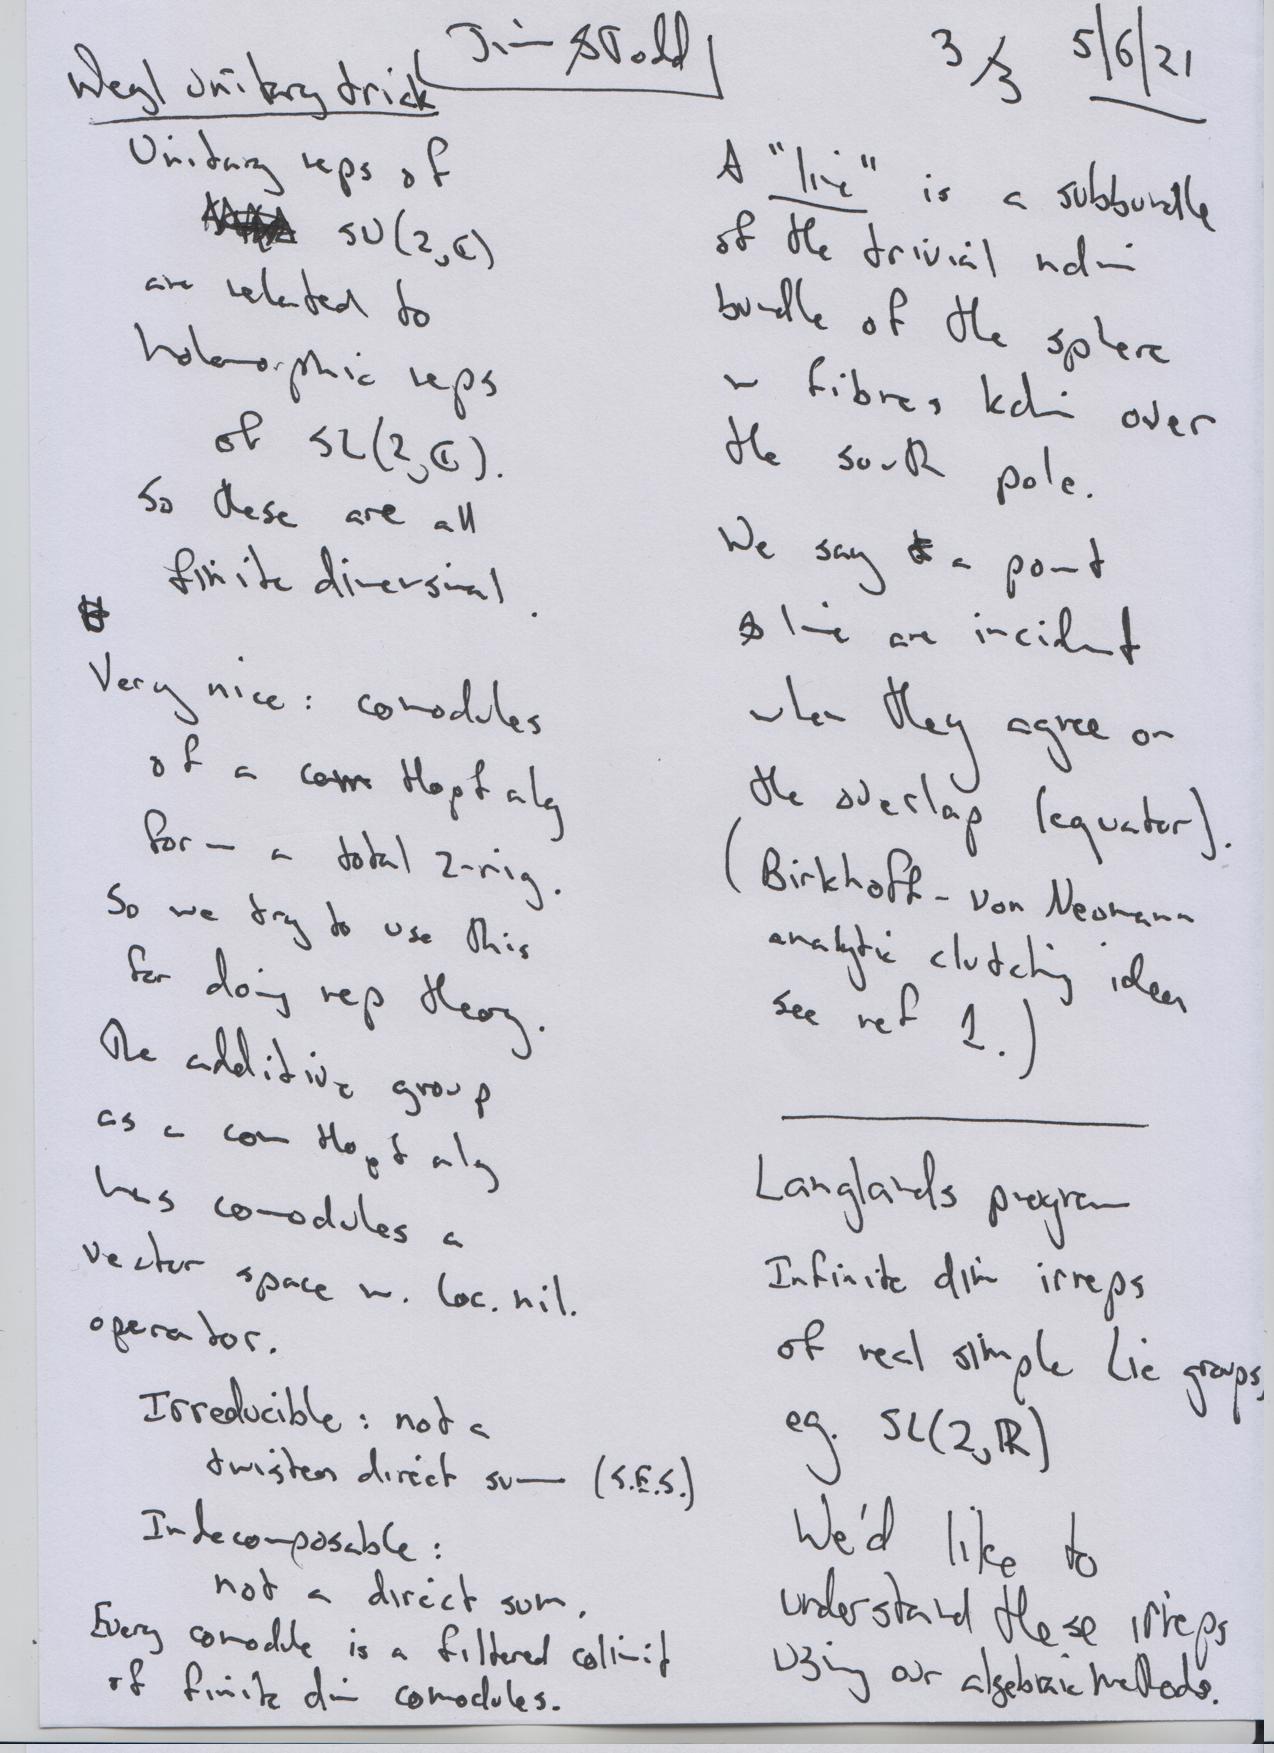 Jim & Todd
3/3 5/6/21
Weyl unitary trick
Unitary reps of
SU(2,ℂ)
are related to
holomorphic reps
of SL(2,ℂ).
So these are all
finite dimensional.
Very nice: comodules
of a com Hopf alg
form a total 2-rig.
So we try to use this
for doing rep theory.
The additive group
as a com Hopf alg
has comodules a
vector space w. loc. nil.
operator.
Irreducible: not a
twisted direct sum (S.E.S.)
Indecomposable:
not a direct sum.
Every comodule is a filtered colimit
of finite dim comodules.
A "line" is a subbundle
of the trivial ndim
bundle of the sphere
w fibres kdim over
the south pole.
We say a point
& line are incident
when they agree on
the overlap (equator).
(Birkhoff - von Neumann
analytic clutching idea
see ref 1.)
Langlands program
Infinite dim irreps
of real simple Lie groups,
eg. SL(2,ℝ)
We'd like to
understand these irreps
using our algebraic methods.